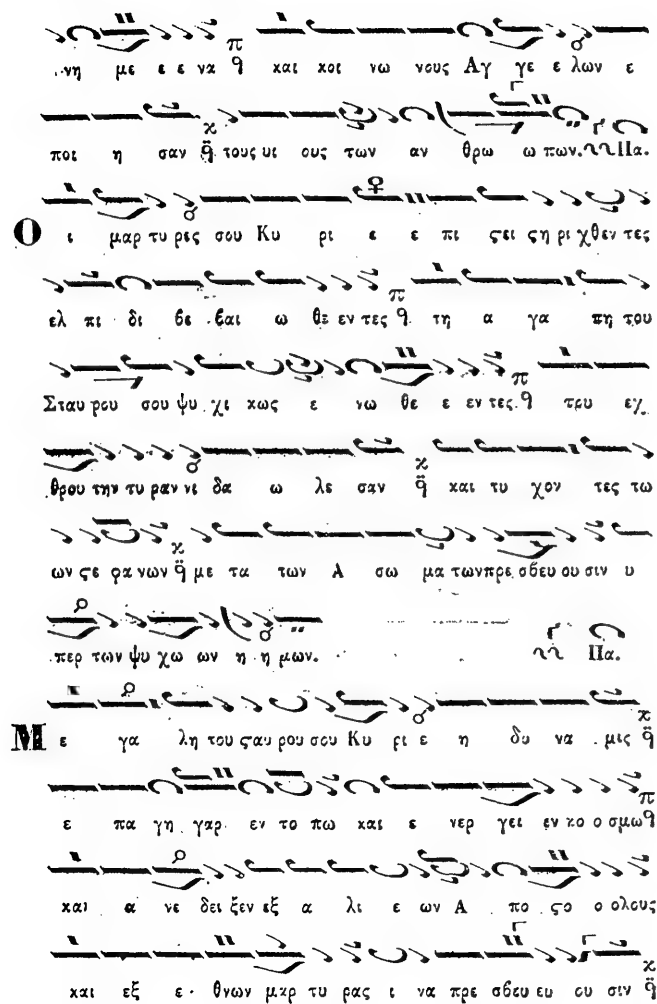 νη με ε ε να και κοι νω νους Αγ γε ε λων ε
ποι η σαν τους υι ους των αν θρω ω πων. Πα.
Ο ι μαρ τυ ρες σου Κυ ρι ε ε πι ϛει ϛη ρι χθεν τες
ελ πι δι βε βαι ω θε εν τες τη α γα πη του
Σταυ ρου σου ψυ χι κως ε νω θε ε εν τες. του εχ
θρου την τυ ραν νι δα ω λε σαν και τυ χον τες τω
ων ϛε φα νων με τα των Α σω μα των πρε σβευ ου σιν υ
περ των ψυ χω ων η η μων. Πα.
Μ ε γα λη του ϛαυ ρου σου Κυ ρι ε η δυ να μις
ε πα γη γαρ εν το πω και ε νερ γει εν κο ο σμω
και α νε δει ξεν εξ α λι ε ων Α πο ϛο ο ολους
και εξ ε θνων μαρ τυ ρας ι να πρε σβευ ευ ου σιν